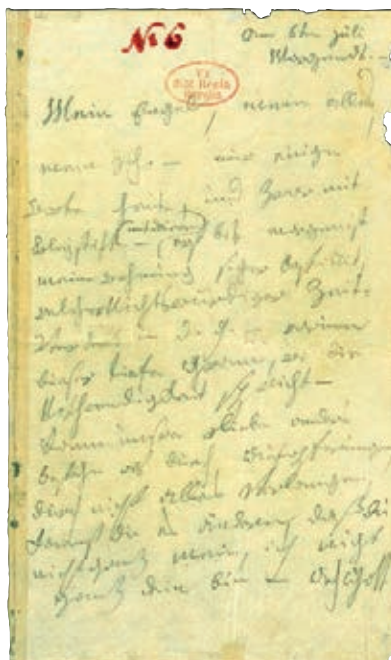 No 6
am 6ten Juli
Morgends. –
Mein Engel, mein alles,
mein Ich. – nur einige
Worte heute, und zwar mit
Bleystift – (mit deinem) erst bis morgen ist
meine wohnung sicher bestimmt,
welcher Nichtswürdiger Zeit-
Verderb in d. g. – warum
dieser tiefe Gram, wo die
Nothwendigkeit spricht –
Kann unsre Liebe anders
bestehn als durch Aufopferungen,
durch nicht alles verlangen,
kannst du es ändern, daß du
nicht ganz mein, ich nicht
ganz dein bin – Ach Gott